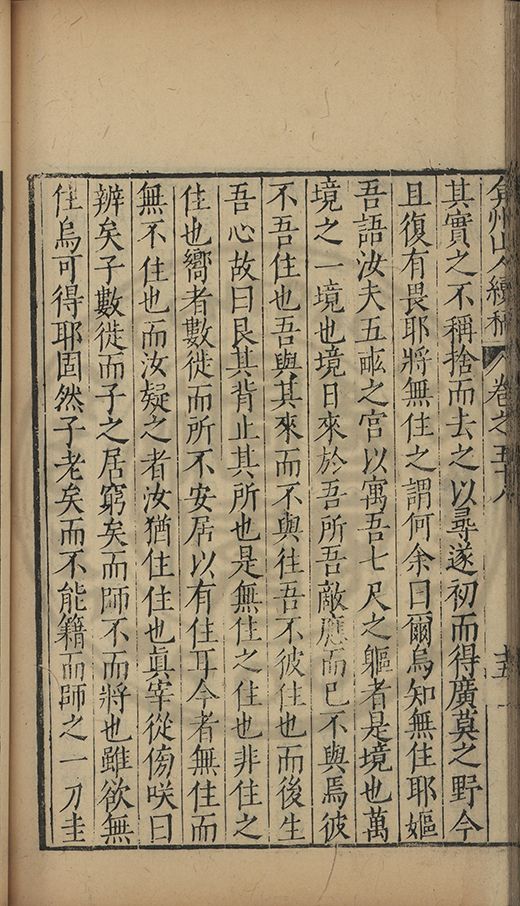 弇州山人續稿 卷之五十八 十五
其實之不稱捨而去之以尋遂初而得廣莫之野今
且復有畏耶將無住之謂何余曰爾烏知無住耶嫗
吾語汝夫五畝之宫以寓吾七尺之軀者是境也萬
境之一境也境日來於吾所吾敵應而已不與焉彼
不吾住也吾與其來而不與往吾不彼住也而後生
吾心故曰艮其背止其所也是無住之住也非住之
住也嚮者數徙而所不安居以有住耳今者無住而
無不住也而汝疑之者汝猶住住也眞宰從傍咲曰
辨矣子數徙而子之居窮矣而師不而將也雖欲無
住烏可得耶固然子老矣而不能籍而師之一刀圭